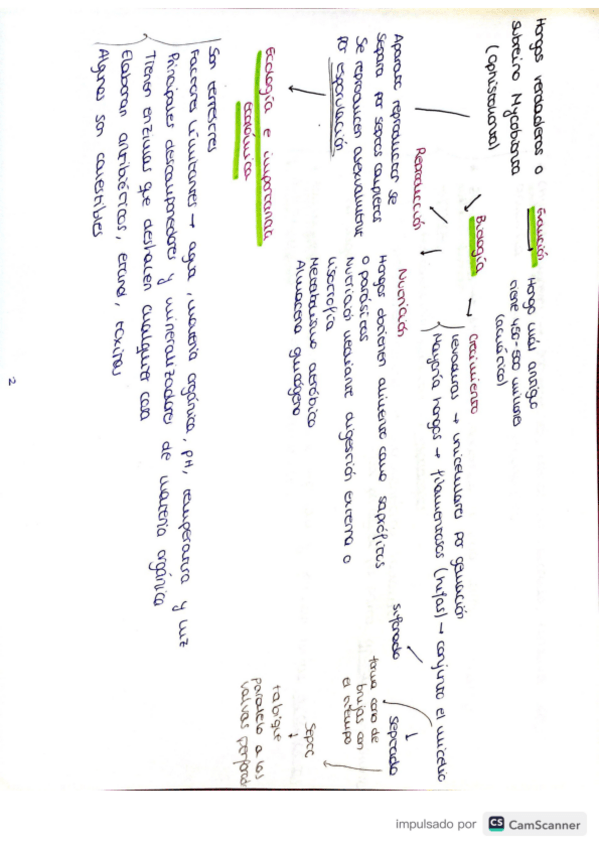 Hongos verdaderos o
subreino Mycobionta
(Ophistokonta)
Evolución
Hongo más antiguo
tiene 450-500 millones
(acuático)
Biología
Crecimiento
Levaduras → unicelulares por gemación
Mayoría hongos → filamentosos (hifas) → conjunto el micelio
sifonado
septado
forma corro de
brujas con
el tiempo
septo
tabique
paralelo a las
valvas
Reproducción
Aparato reproductor se
separa por septos completos
Se reproducen asexualmente
por esporulación
Nutrición
Hongos obtienen alimento como saprófitos
o parásitos
Nutrición mediante digestión externa o
lisotrofia
Metabolismo aeróbico
Almacena glucógeno
Ecología e importancia
económica
Son terrestres
Factores limitantes → agua, materia orgánica, pH, temperatura y luz
Principales descomponedores y mineralizadores de materia orgánica
Tienen enzimas que deshacen cualquier cosa
Elaboran antibióticos, etanol, toxinas
Algunos son comestibles
2
impulsado por CS CamScanner